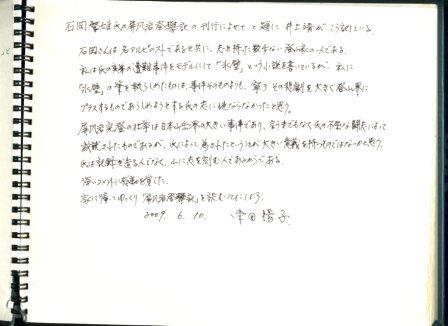 石岡繁雄氏の屏風岩登攀記の刊行によせて と題に 井上靖が こう記している
石岡さんは名アルピニストであると共に、志を持た数少ない登山家の一人である。
私は氏の実弟の遭難事件をモデルにして「氷壁」という小説を書いているが、私に
「氷壁」の筆を執らしめたものは、事件そのものよりも、寧ろその悲劇を大きく登山界に
プラスするものであらしめようとする氏の志に他ならなかったと思う。
屏風岩完登の壮挙は日本山岳界の大きい事件であり、言うまでもなく氏の不屈な闘志によって
成就されたものであるが、氏によって為されたということが大きい意義を持つのではなかったかと思う。
氏は記録を造る人でなく、山に志を刻む人であるからである。
深いコメントに感動を覚えた。
家に帰ってゆっくり「屏風岩登攀記」を読むことにしよう。
2009. 6. 10. 津田陽子